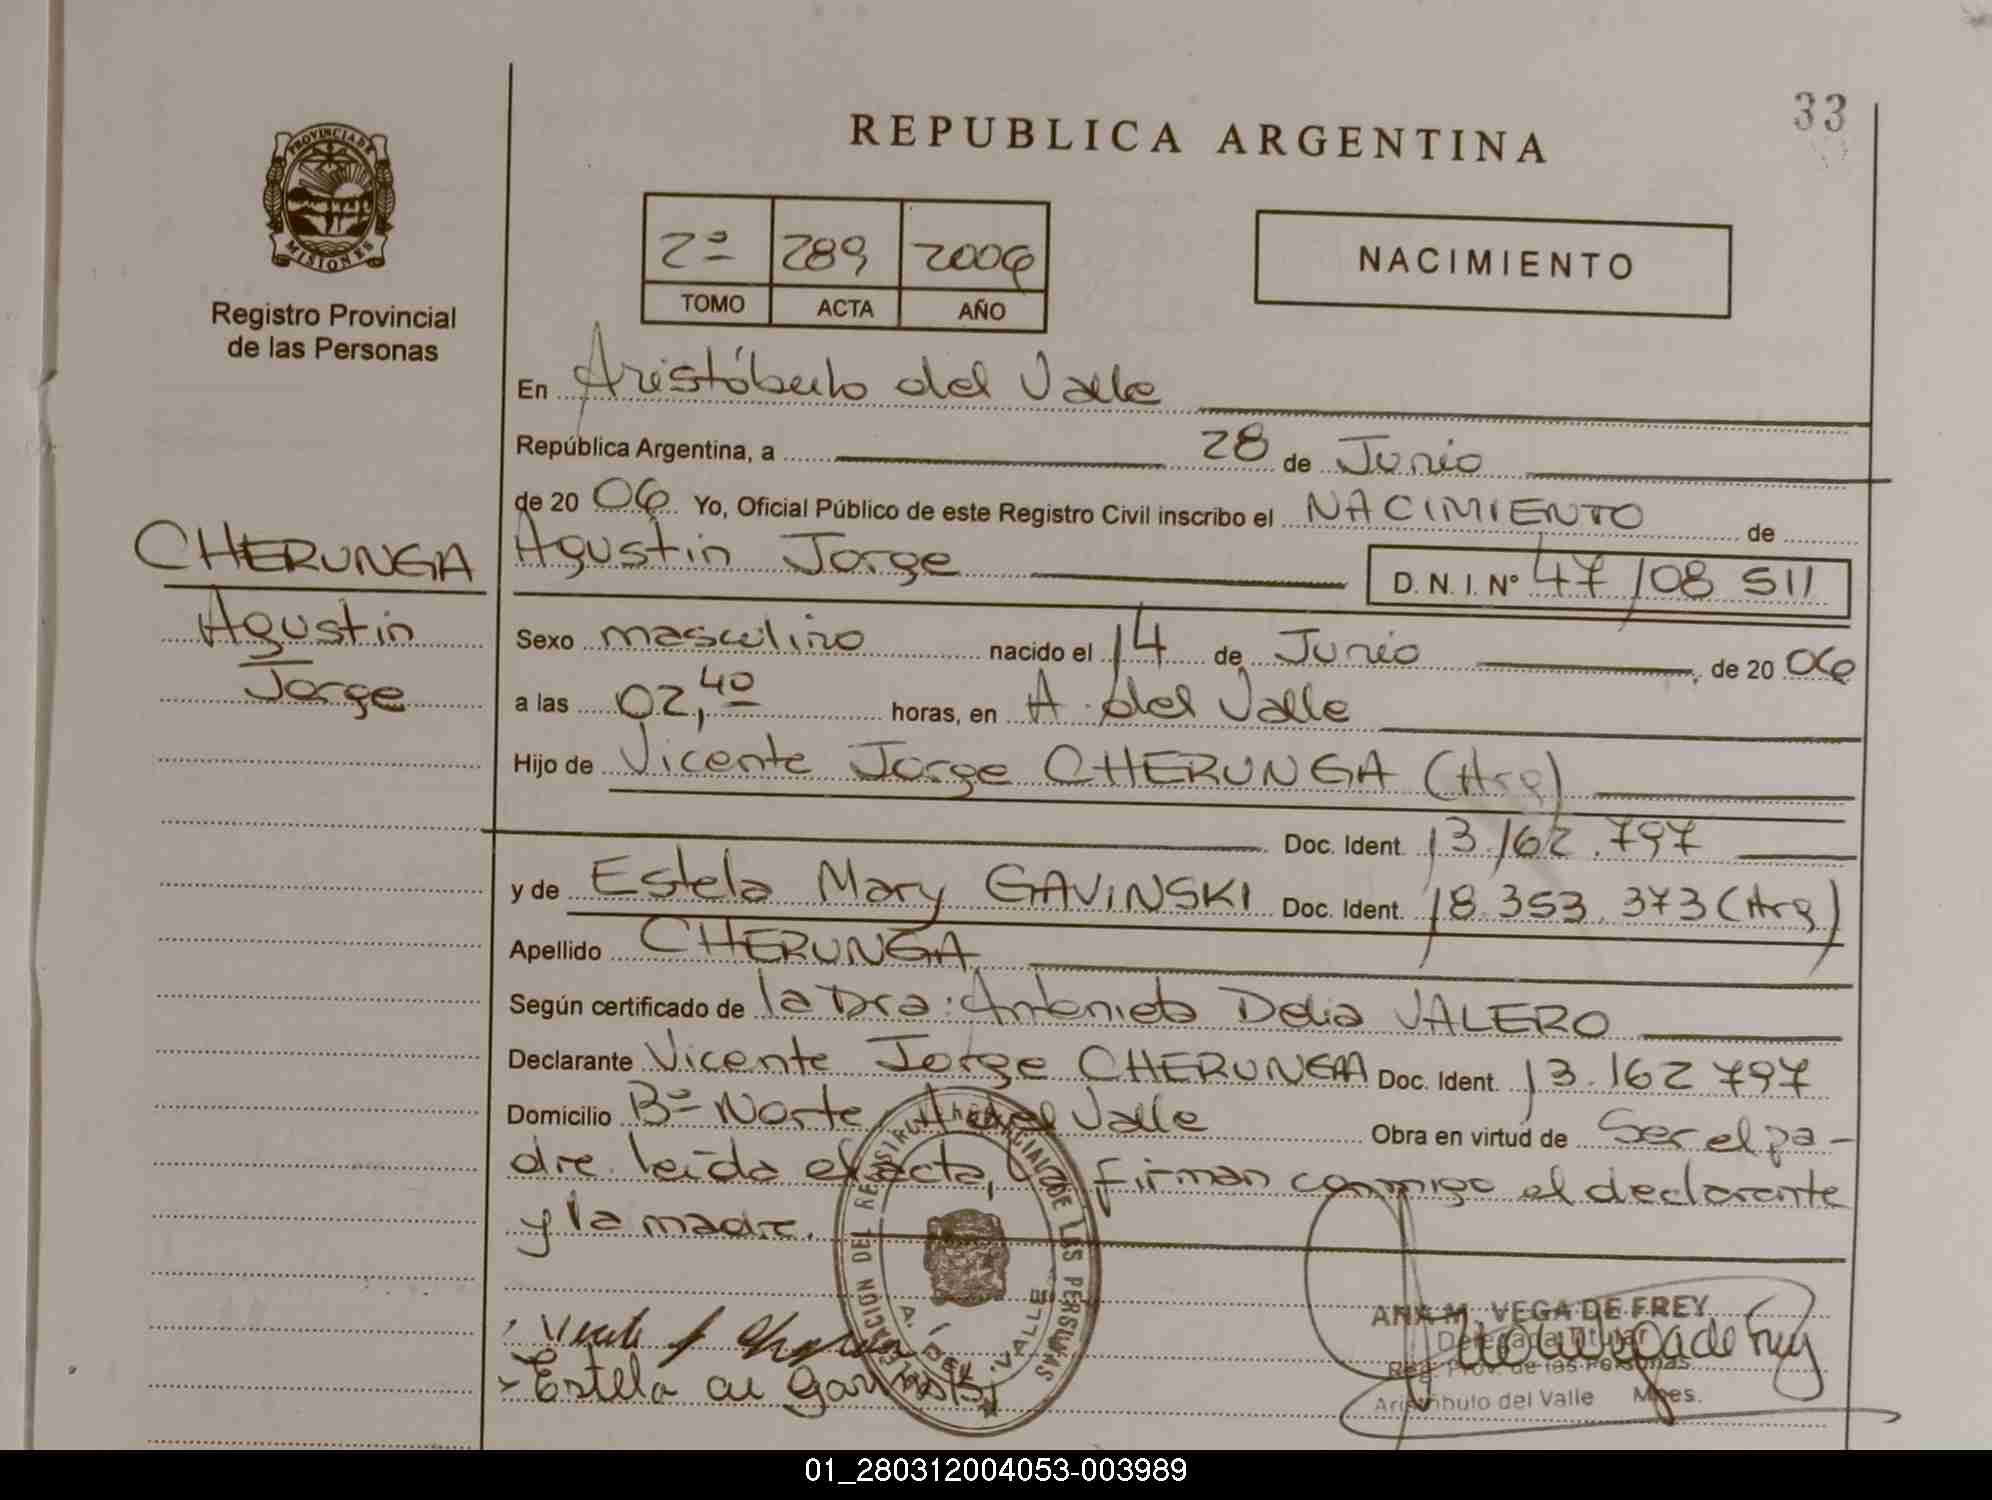 33
REPUBLICA ARGENTINA
PROVINCIA DE
MISIONES
Registro Provincial
de las Personas
2º 289 2006
TOMO ACTA AÑO
NACIMIENTO
En Aristóbulo del Valle
República Argentina, a 28 de Junio
de 20 06 Yo, Oficial Público de este Registro Civil inscribo el NACIMIENTO de
CHERUNGA
Agustin
Jorge
Agustin Jorge D. N. I. Nº 47 108 511
Sexo masculino nacido el 14 de Junio, de 20 06
a las 02,40 horas, en A. del Valle
Hijo de Vicente Jorge CHERUNGA (Arg)
Doc. Ident. 13.162.797
y de Estela Mary GAVINSKI Doc. Ident. 18.353.373 (Arg)
Apellido CHERUNGA
Según certificado de la Dra: Antonieta Delia VALERO
Declarante Vicente Jorge CHERUNGA Doc. Ident. 13.162 797
Domicilio Bº Norte A. del Valle Obra en virtud de Ser el pa-
dre. leída el acta, firman conmigo el declarante
y la madre.
DE LAS PERSONAS
A. DEL VALLE
ANA M. VEGA DE FREY
Delegada Titular
Reg. Prov. de las Personas
Aristóbulo del Valle Mnes.
Estela
01_280312004053-003989